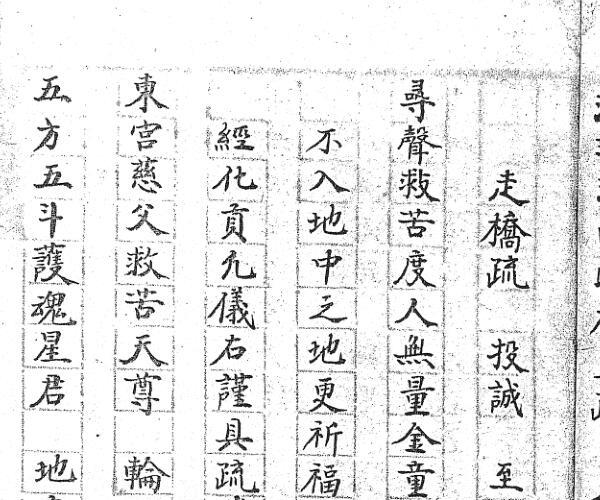 走橋疏 投誠 至
尋聲救苦度人無量金童
不入地中之地更祈福
經化貢凡儀右謹具疏
東宮慈父救苦天尊 輪
五方五斗護魂星君 地